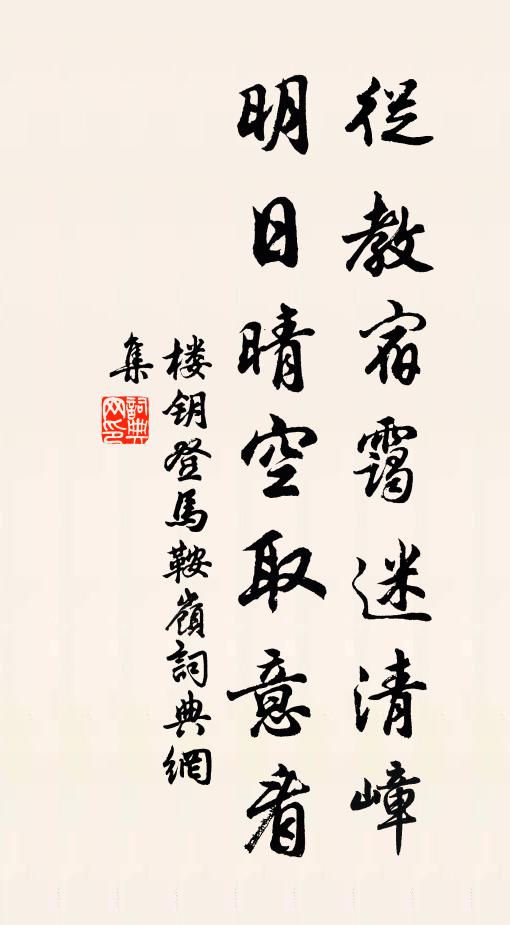 從教宿靄迷清嶂
明日晴空取意看
楼钥登馬鞍嶺詞典網
集
詞典
网印